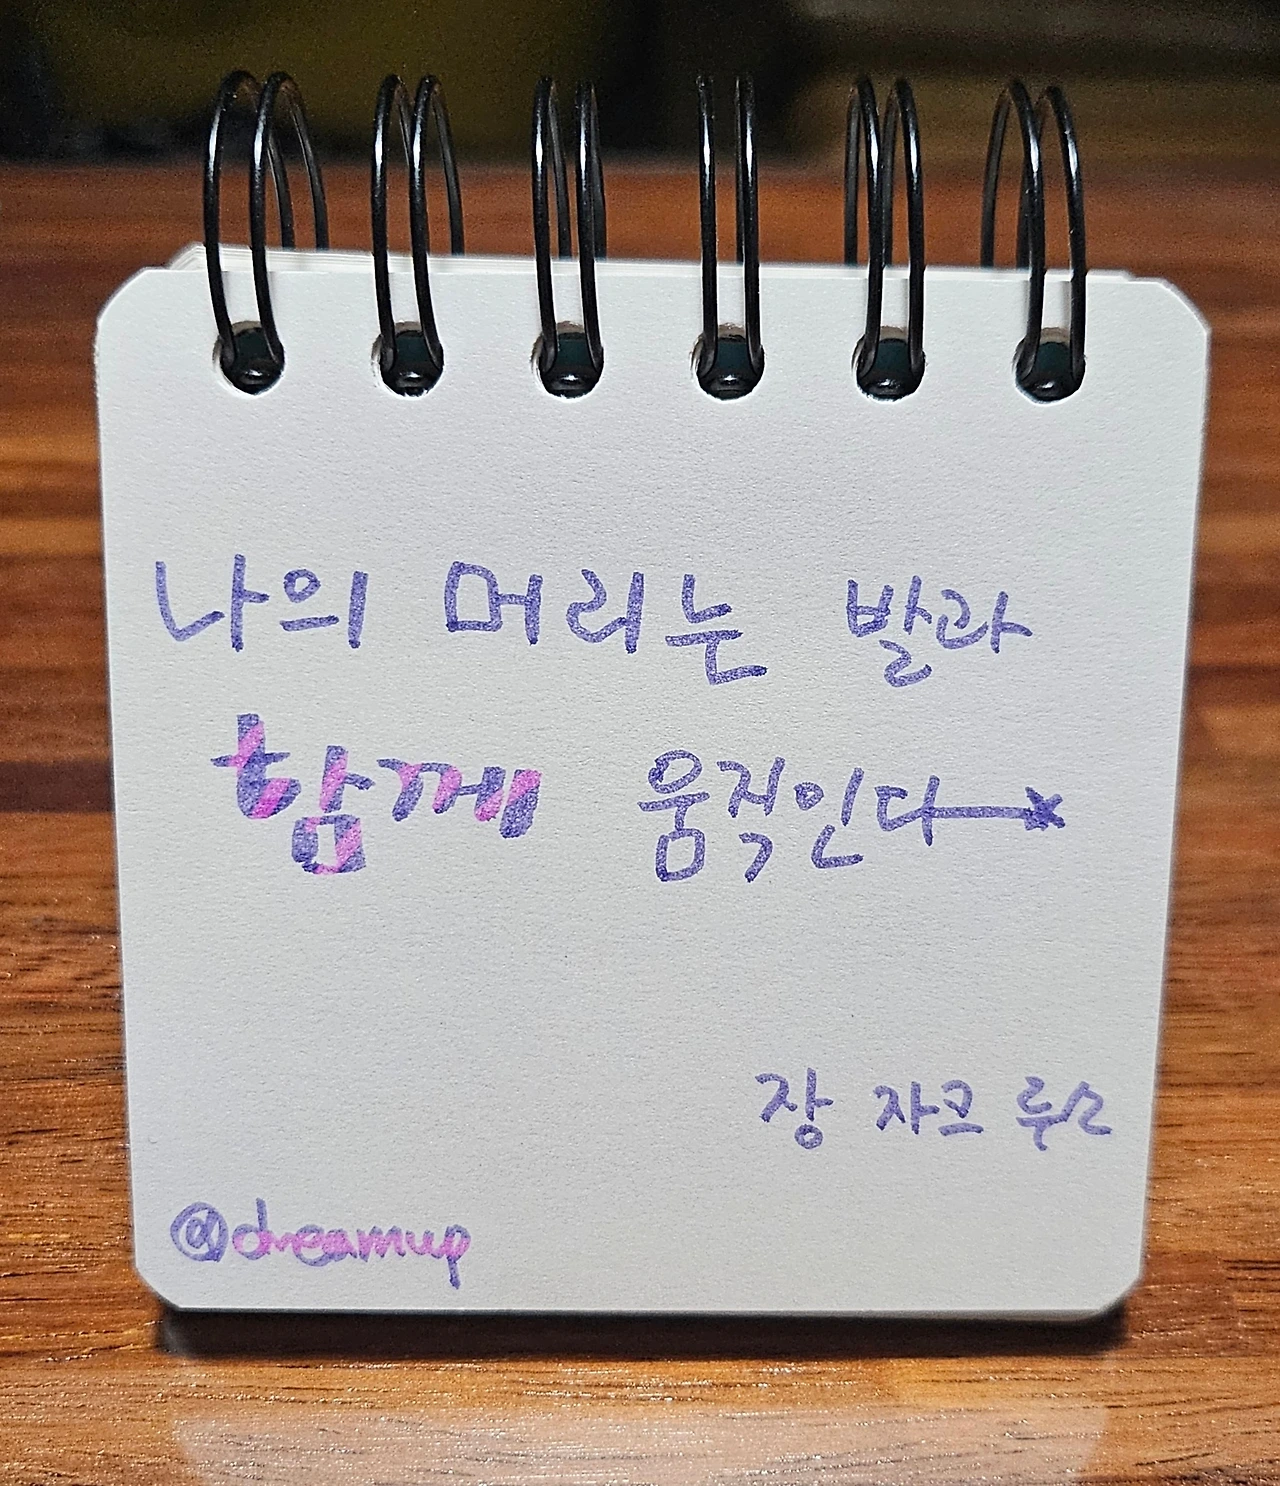 나의 머리는 발과
함께 움직인다
장 자크 루소
@dreamup